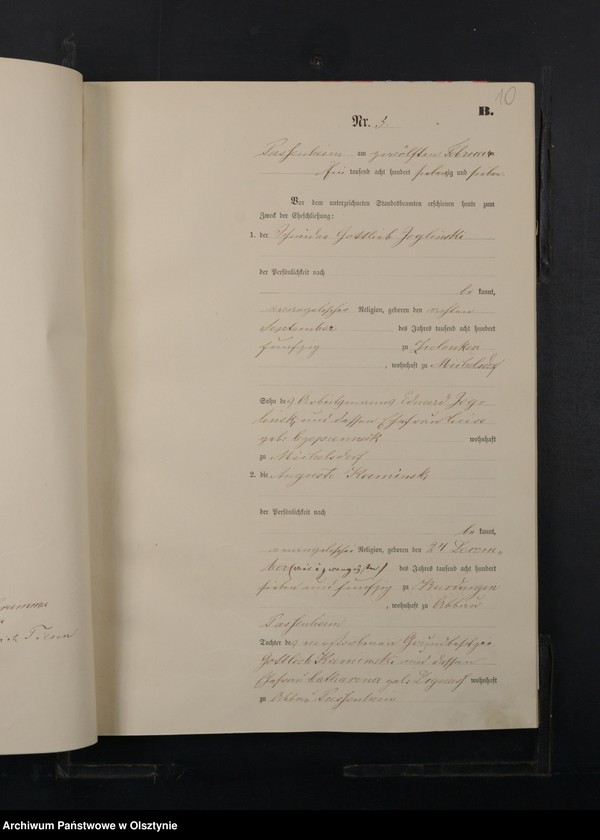 10
B.
Nr. 5.
Passenheim am zwölften Februar
Ein tausend acht hundert siebenzig und sieben
Vor dem unterzeichneten Standesbeamten erschienen heute zum
Zweck der Eheschließung:
1. der Gottlieb
der Persönlichkeit nach
be kannt,
evangelischer Religion, geboren den
September des Jahres tausend acht hundert
fünfzig zu
, wohnhaft zu Michelsdorf
Sohn des Eduard
und dessen Ehefrau Louise
geb. wohnhaft
zu Michelsdorf
2. die Auguste Kaminski
der Persönlichkeit nach
be kannt,
evangelischer Religion, geboren den 24 Dezem-
ber (vier u zwanzigsten) des Jahres tausend acht hundert
sieben und fünfzig zu
, wohnhaft zu Abbau
Passenheim
Tochter des verstorbenen
Gottlieb Kaminski und dessen
Ehefrau Catharina geb. wohnhaft
zu Abbau Passenheim
Archiwum Państwowe w Olsztynie